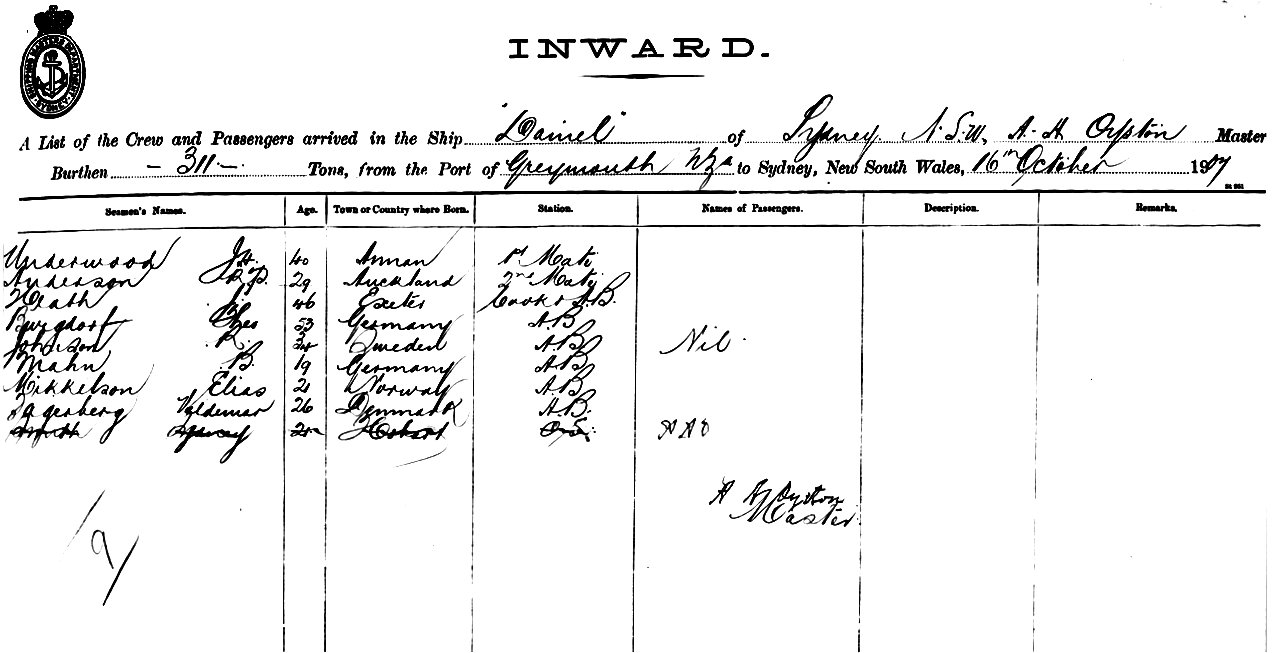 SHIPPING MASTERS DEPARTMENT
INWARD.
A List of the Crew and Passengers arrived in the Ship "Daniel" of Sydney N.S.W. A. H. Oyston Master
Burthen - 311 - Tons, from the Port of Greymouth to Sydney, New South Wales, 16th October 1907
Seamen's Names. Age. Town or Country where Born. Station. Names of Passengers. Description. Remarks.
Underwood J.H. 40 Annan 1st Mate
Anderson R.P. 29 Auckland 2nd Mate
Heath 46 Exeter Cook & A.B.
Burgdorf Theo 53 Germany A.B
Johnson R. Sweden A.B Nil
Mahn B. 19 Germany A.B
Mikkelson Elias 21 Norway A.B
Valdemar 26 Denmark A.B.
Smith Sydney Hobart O.S. AHO
A H Oyston
Master
9